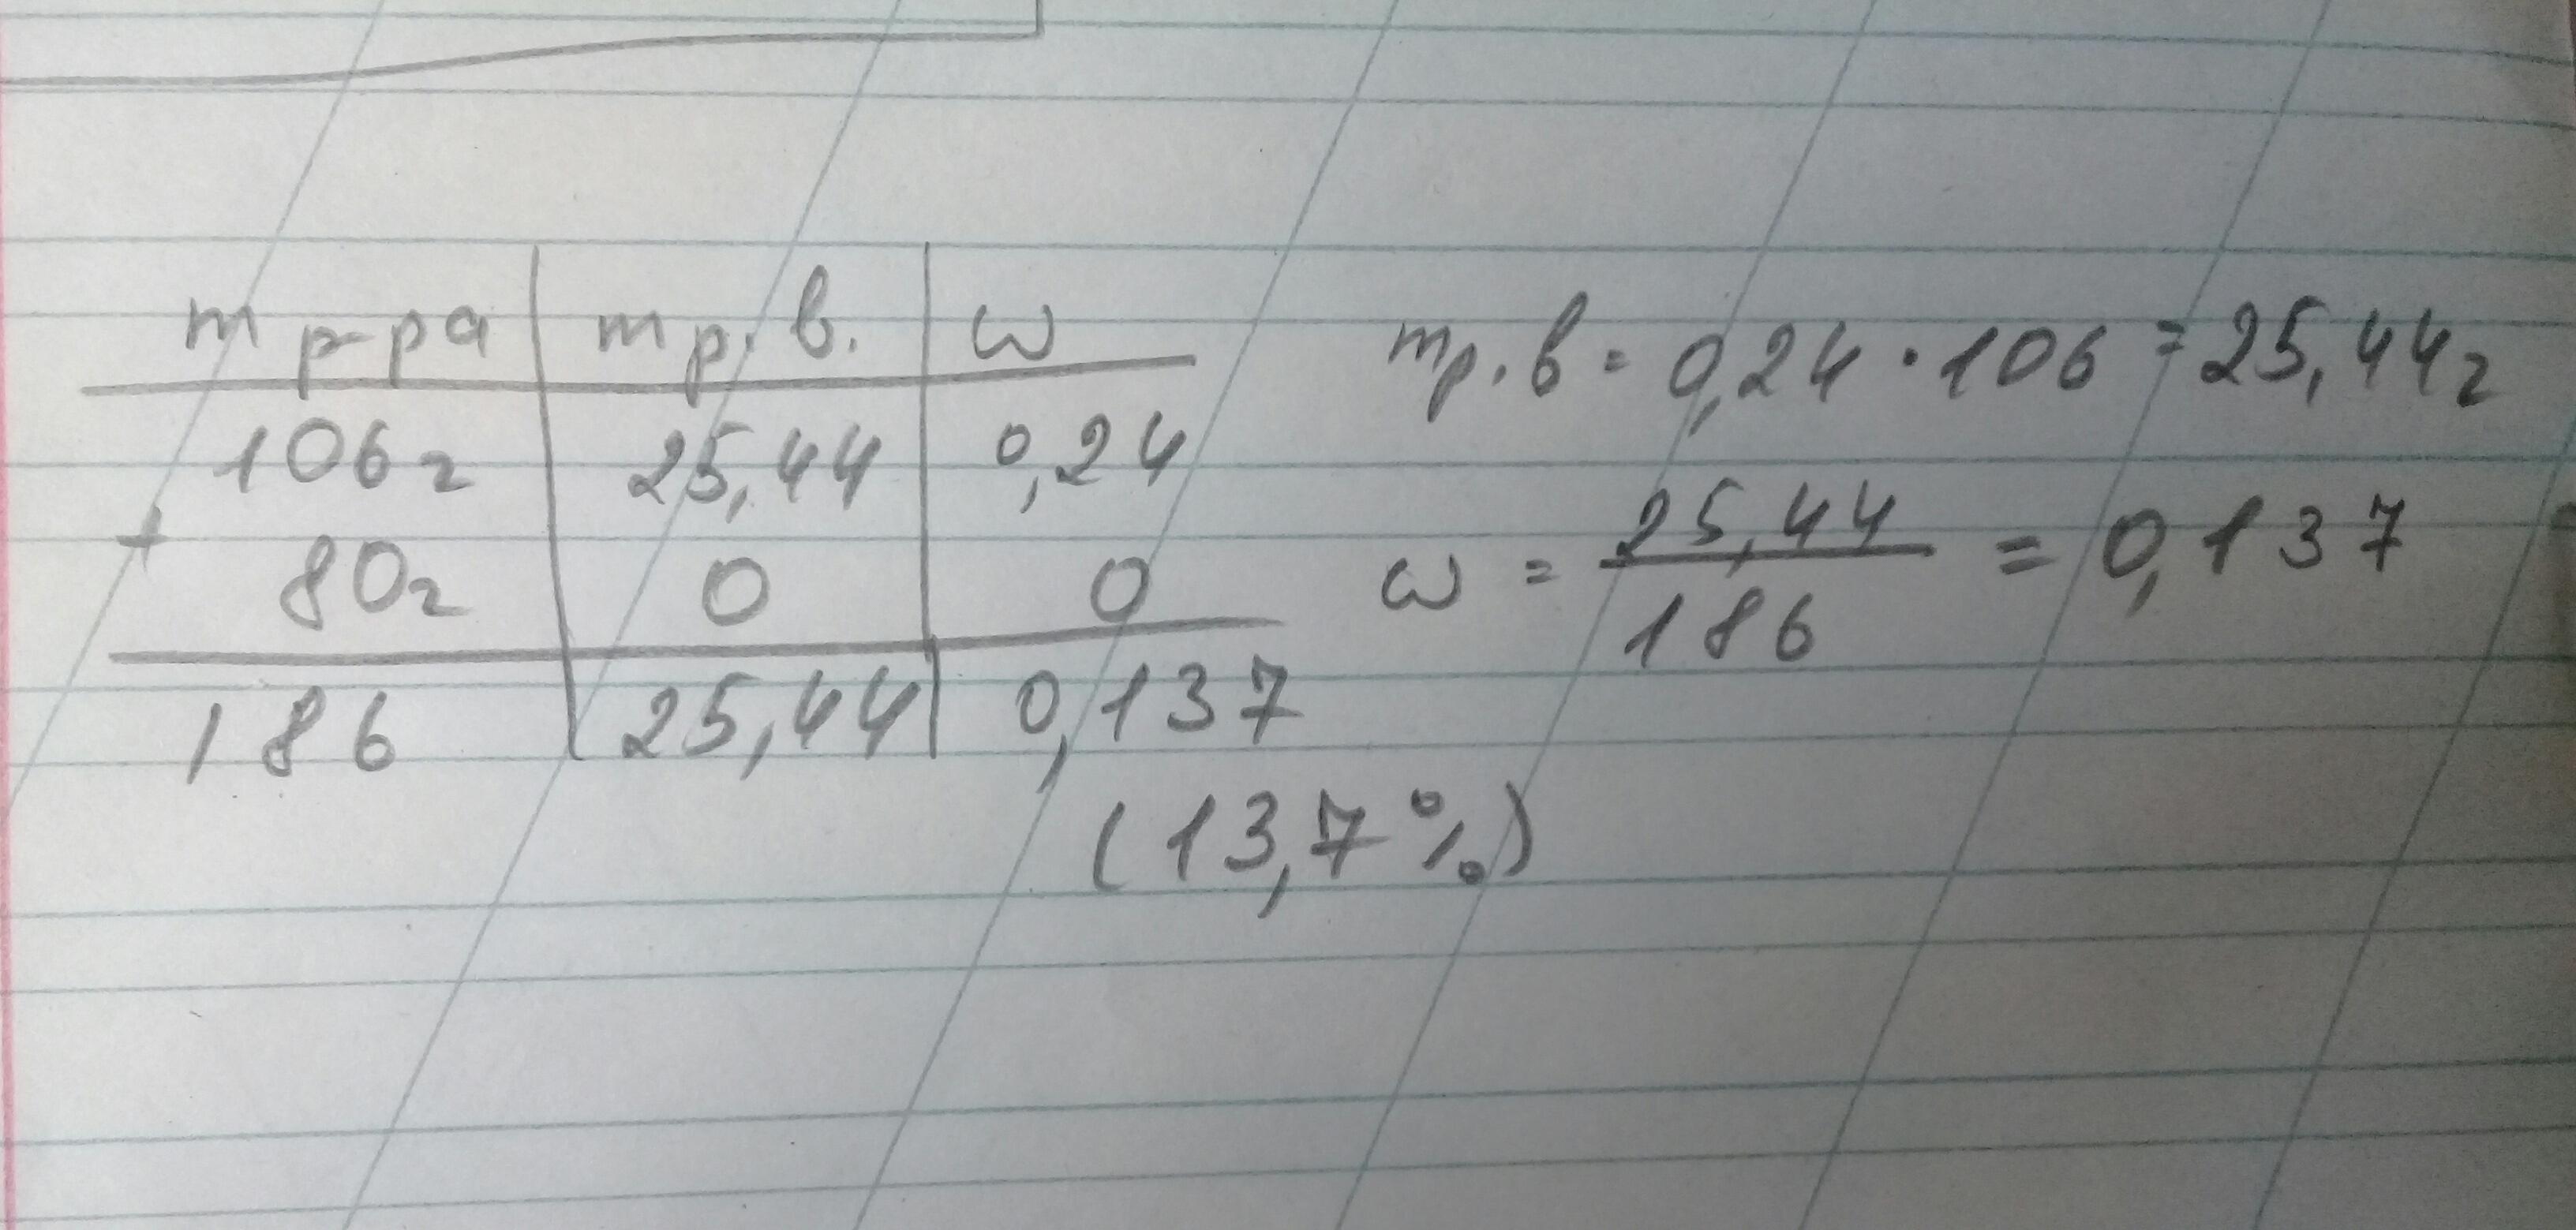 m р-ра m р.в. ω
106г 25,44 0,24
+
80г 0 0
186 25,44 0,137
(13,7%)
m р.в = 0,24 · 106 = 25,44г
ω = 25,44 / 186 = 0,137